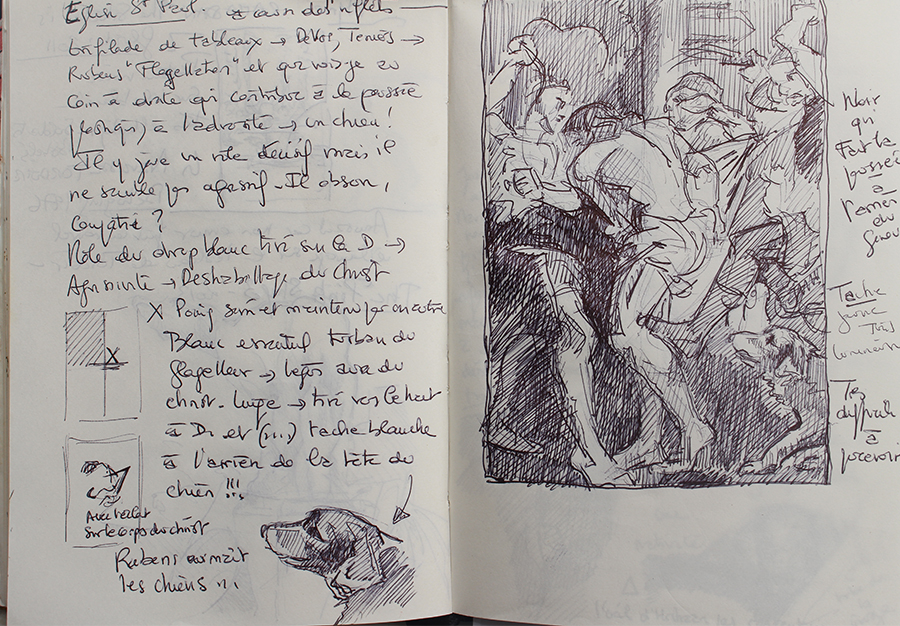 Eglise St Paul. à cause des reflets
Enfilade de tableaux → De Vos, Teniers →
Rubens "Flagellation" et que vois-je au
coin à droite qui contribue à la poussée
jusqu'à l'adversité → un chien!
Il y joue un rôle décisif mais il
ne semble pas agressif. Il observe,
Compatit?
Rôle du drap blanc tiré sur la D →
→ Deshabillage du Christ
X Poing serré et maintenu par un autre
Blanc essentiel turban du
flageller → legère aura du
christ. Linge → tiré vers le haut
à D. et (...) tache blanche
à l'arrière de la tête du
chien !!!
X
Avec reflet
sur le corps du christ
Rubens aimait
les chiens ...
Noir
qui
Fait la
poussée
à
l'arrière
du
genou
Tache
jaune
Très
lumineuse
Très
difficile
à
percevoir